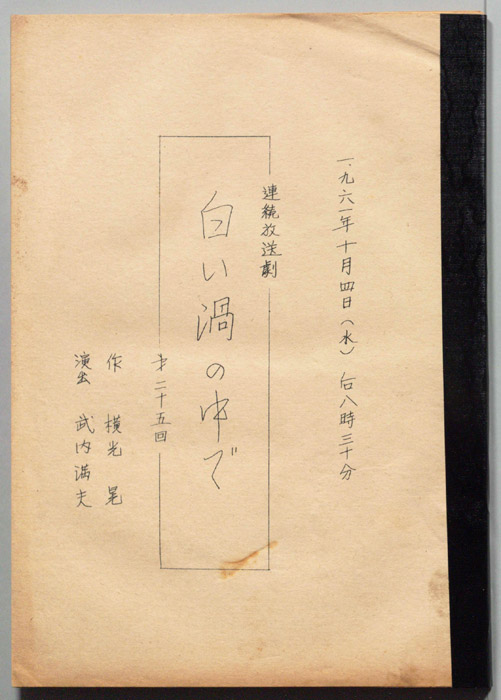 一九六一年十月四日(水) 后八時三十分
連続放送劇
白い渦の中で
才二十五回
作 横光 晃
演出 武内満夫